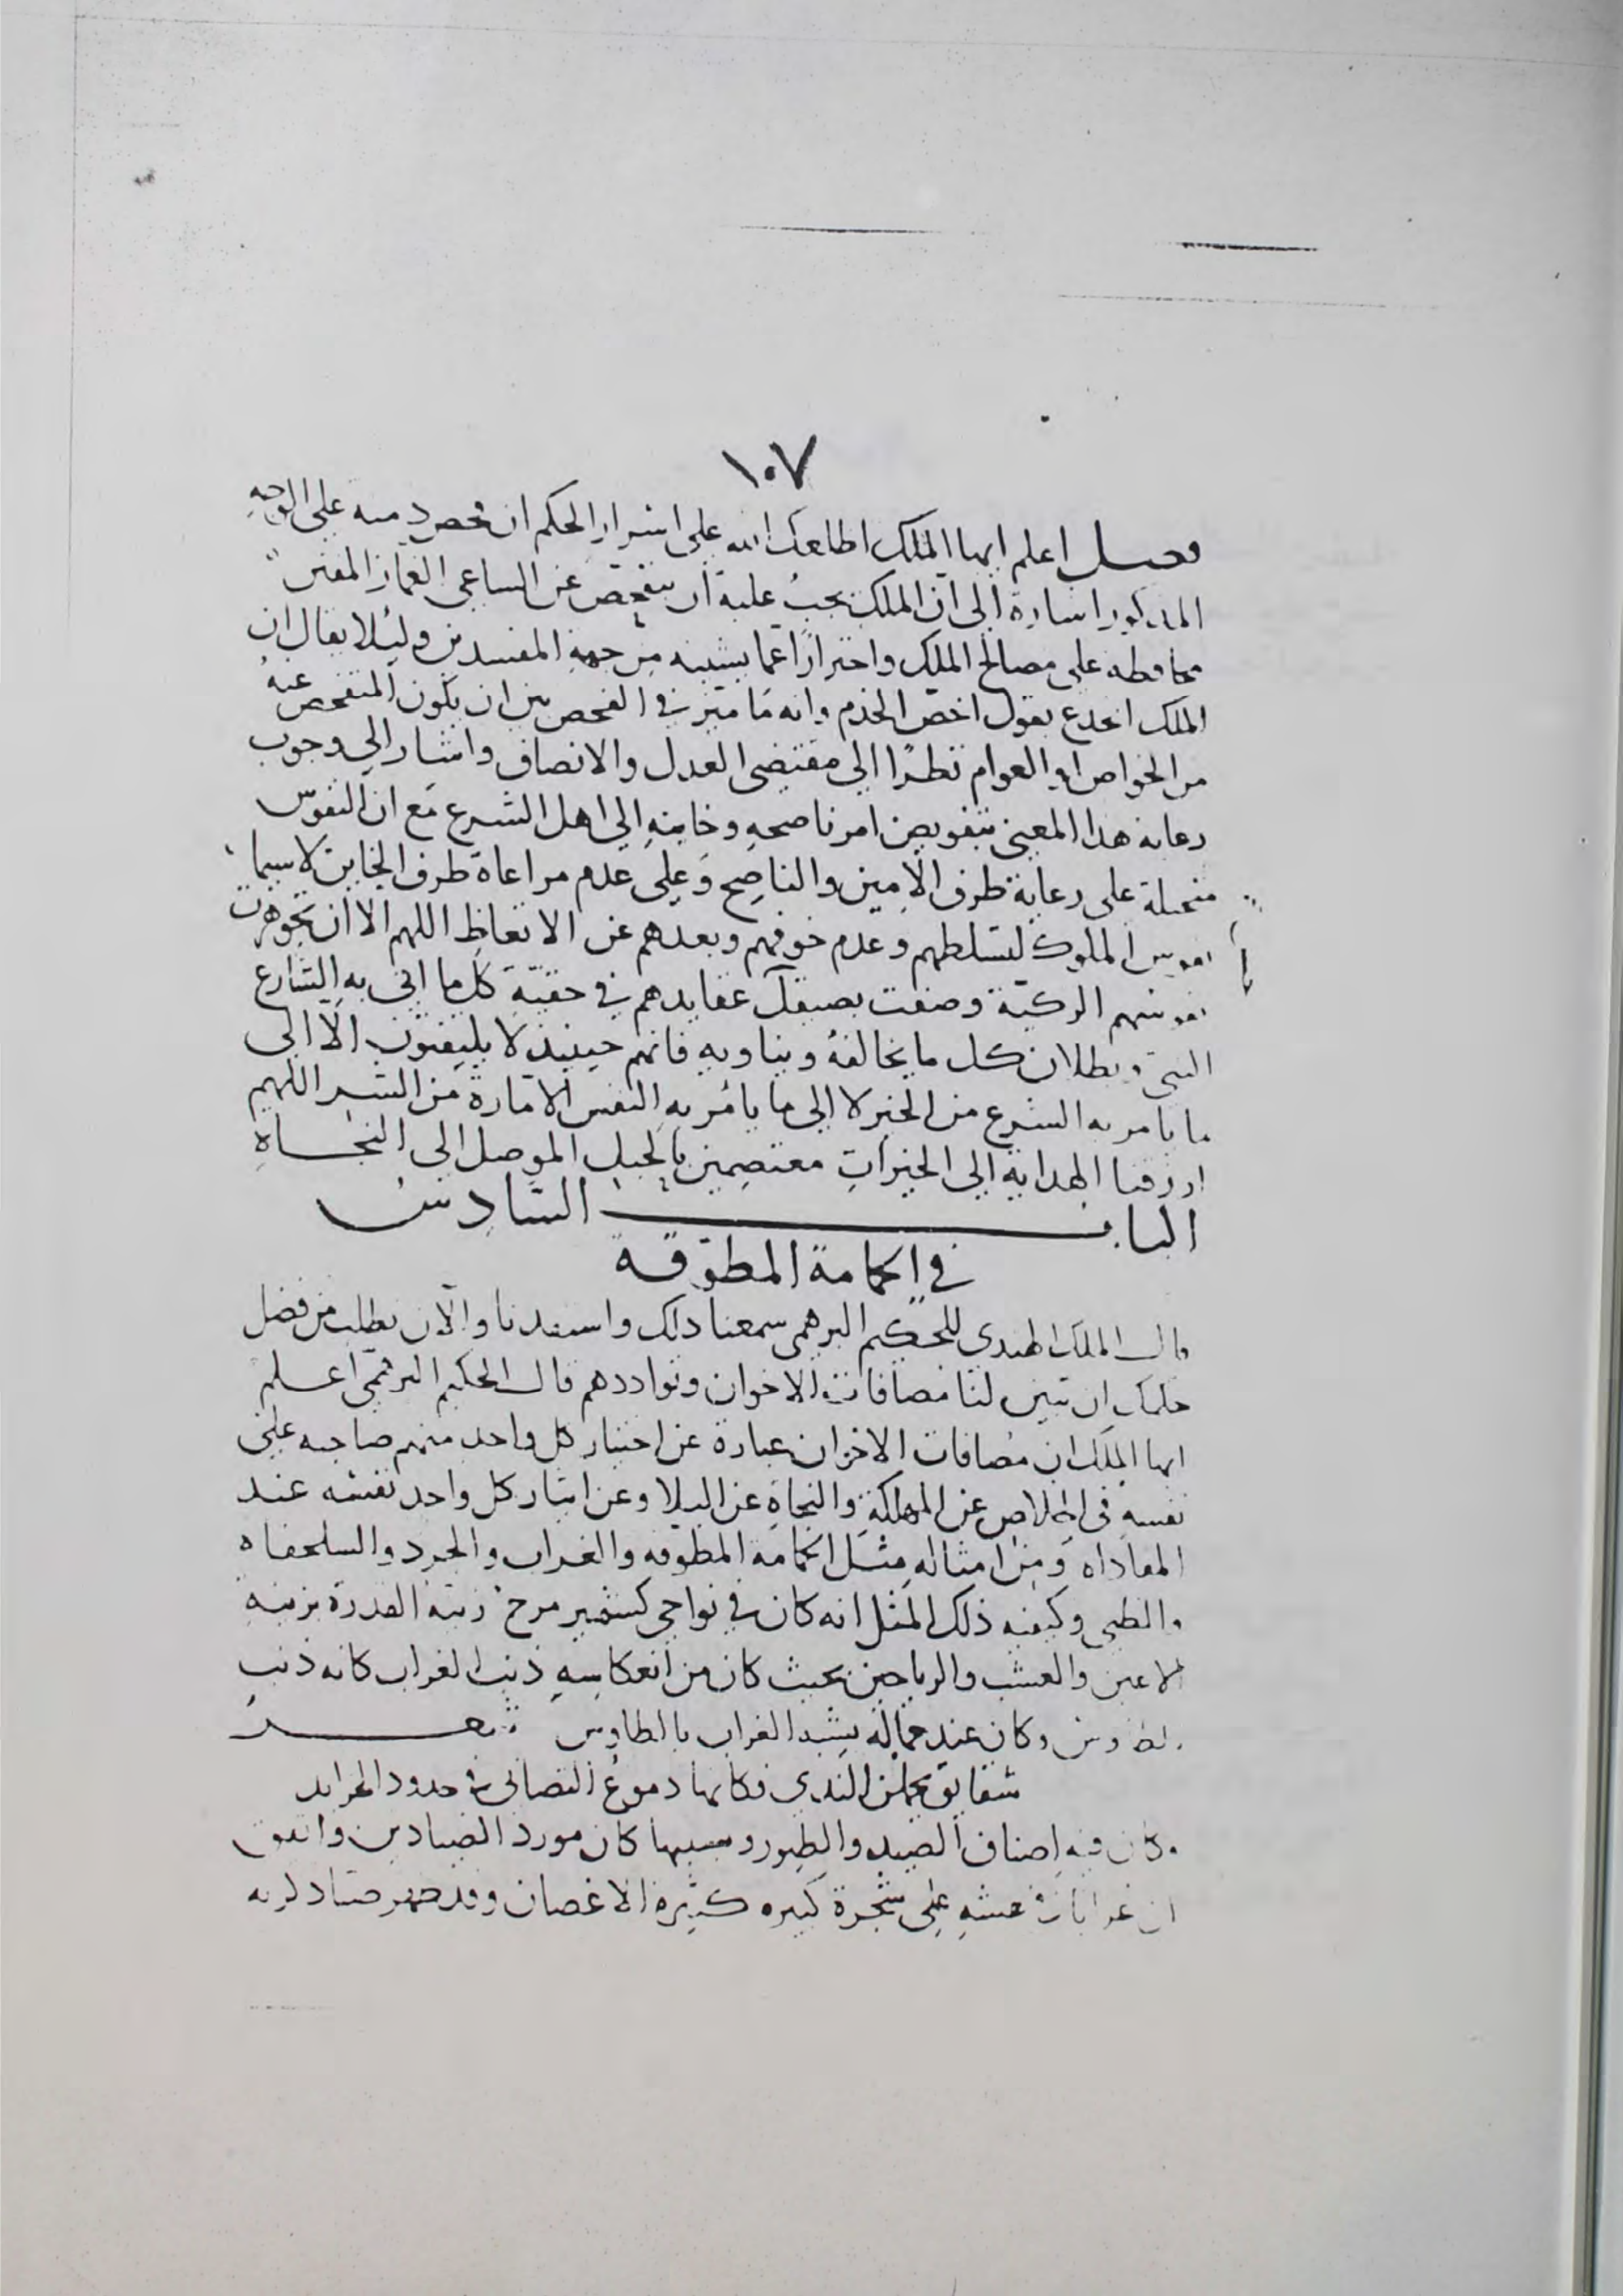 ١٠٧
فصل اعلم ايها الملك اطلعك الله على اسرار الحكم ان فيه على الوجه
المذكور اشارة الى ان الملك يجب عليه ان يتفحص عن الساعي الغماز المفتن
محافظة على مصالح الملك واحترازا عما يشينه من جهة المفسدين وليلا يقال ان
الملك انخدع بقول اخص الخدم وانه ما ميز في الفحص بين ان يكون المتفحص عنه
من الخواص او العوام نظرًا الى مقتضى العدل والانصاف واشار الى وجوب
رعاية هذا المعنى بتفويض امر ناصحه وخاينه الى اهل الشرع مع ان النفوس
على رعاية طرف الامين والناصح وعلى عدم مراعاة طرف الخاين لاسيما
نفوس الملوك لتسلطهم وعدم خوفهم وبعدهم عن الاتعاظ اللهم الا ان تجوهرت
نفوسهم الزكية وصفت بصيقل عقايدهم في حقية كل ما اتى به الشارع
النبي وبطلان كل ما يخالفه ويناويه فانهم حينيذ لا يلتفتون الا الى
ما يامر به الشرع من الخير لا الى ما يامر به النفس الامارة من الشر اللهم
ارزقنا الهداية الى الخيرات معتصمين بالحبل الموصل الى النجاة
الباب السادس
في الحمامة المطوقة
قال الملك الهندي للحكيم البرهمي سمعنا ذلك واستفدنا والان نطلب من فضل
حكمك ان تبين لنا مصافات الاخوان وتواددهم قال الحكيم البرهمي اعلم
ايها الملك ان مصافات الاخوان عبارة عن اختيار كل واحد منهم صاحبه على
نفسه في الخلاص عن المهلكة والنجاة عن البلا وعن ايثار كل واحد نفسه عند
المعاداه ومن امثاله مثل الحمامة المطوقه والغراب والجرد والسلحفاه
والظبي وكيفية ذلك المثل انه كان في نواحي كشمير مرج زينة القدرة بزينة
الاعين والعشب والرياحين بحيث كان من انعكاسه ذنب الغراب كانه ذنب
الطاوس وكان عند جماله يشبه الغراب بالطاوس شعر
شقايق يحملن الندى فكانها دموع التصابي في خدود الخرايد
وكان فيه اصناف الصيد والطيور وبسببها كان مورد الصيادين واتفق
ان غرابا في عشه على شجرة كبيره كثيرة الاغصان وقد صياد